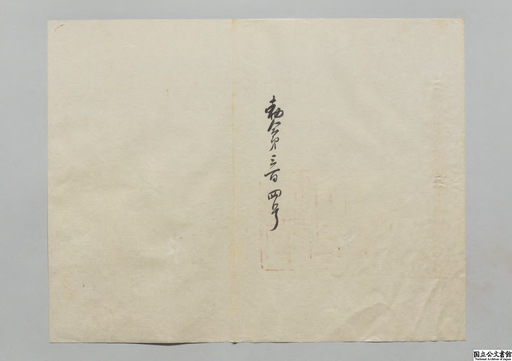 勅令第三百四号
国立公文書館
National Archives of Japan